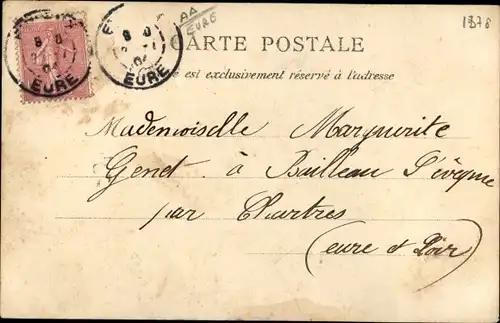 1878
AA
EURE
CARTE POSTALE
est exclusivement réservé à l'adresse
8
04
EURE
8
04
EURE
Mademoiselle Marguerite
Genet à Bailleau l'évêque
par Chartres
(eure et Loir)